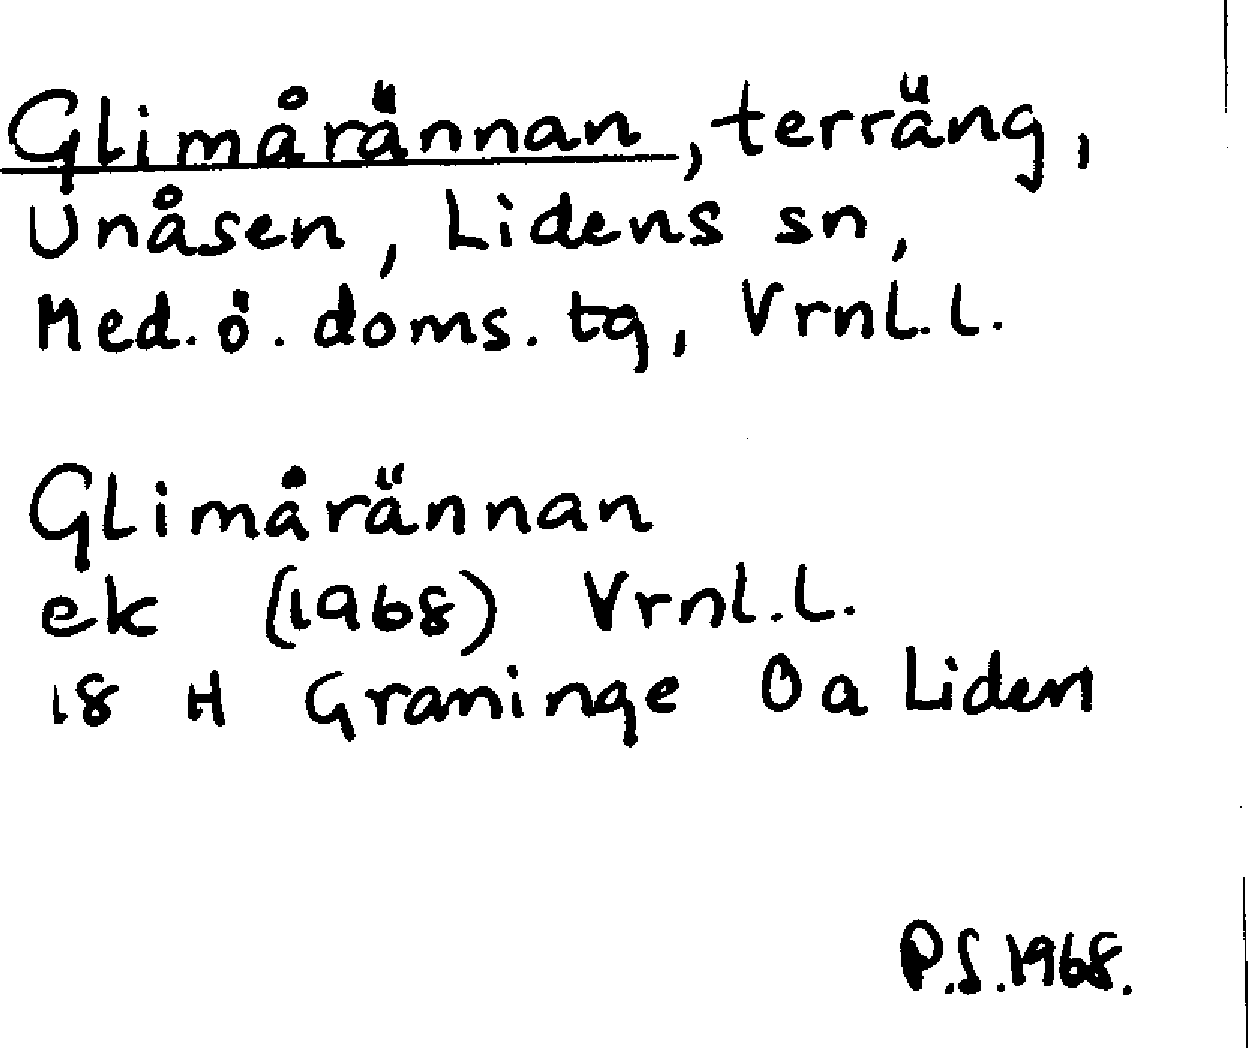 Glimårännan, terräng,
Unåsen, Lidens sn,
Med. ö. doms. tg, Vrnl. l.
Glimårännan
ek (1968) Vrnl. l.
18 H Graninge 0 a Liden
P.S. 1968.